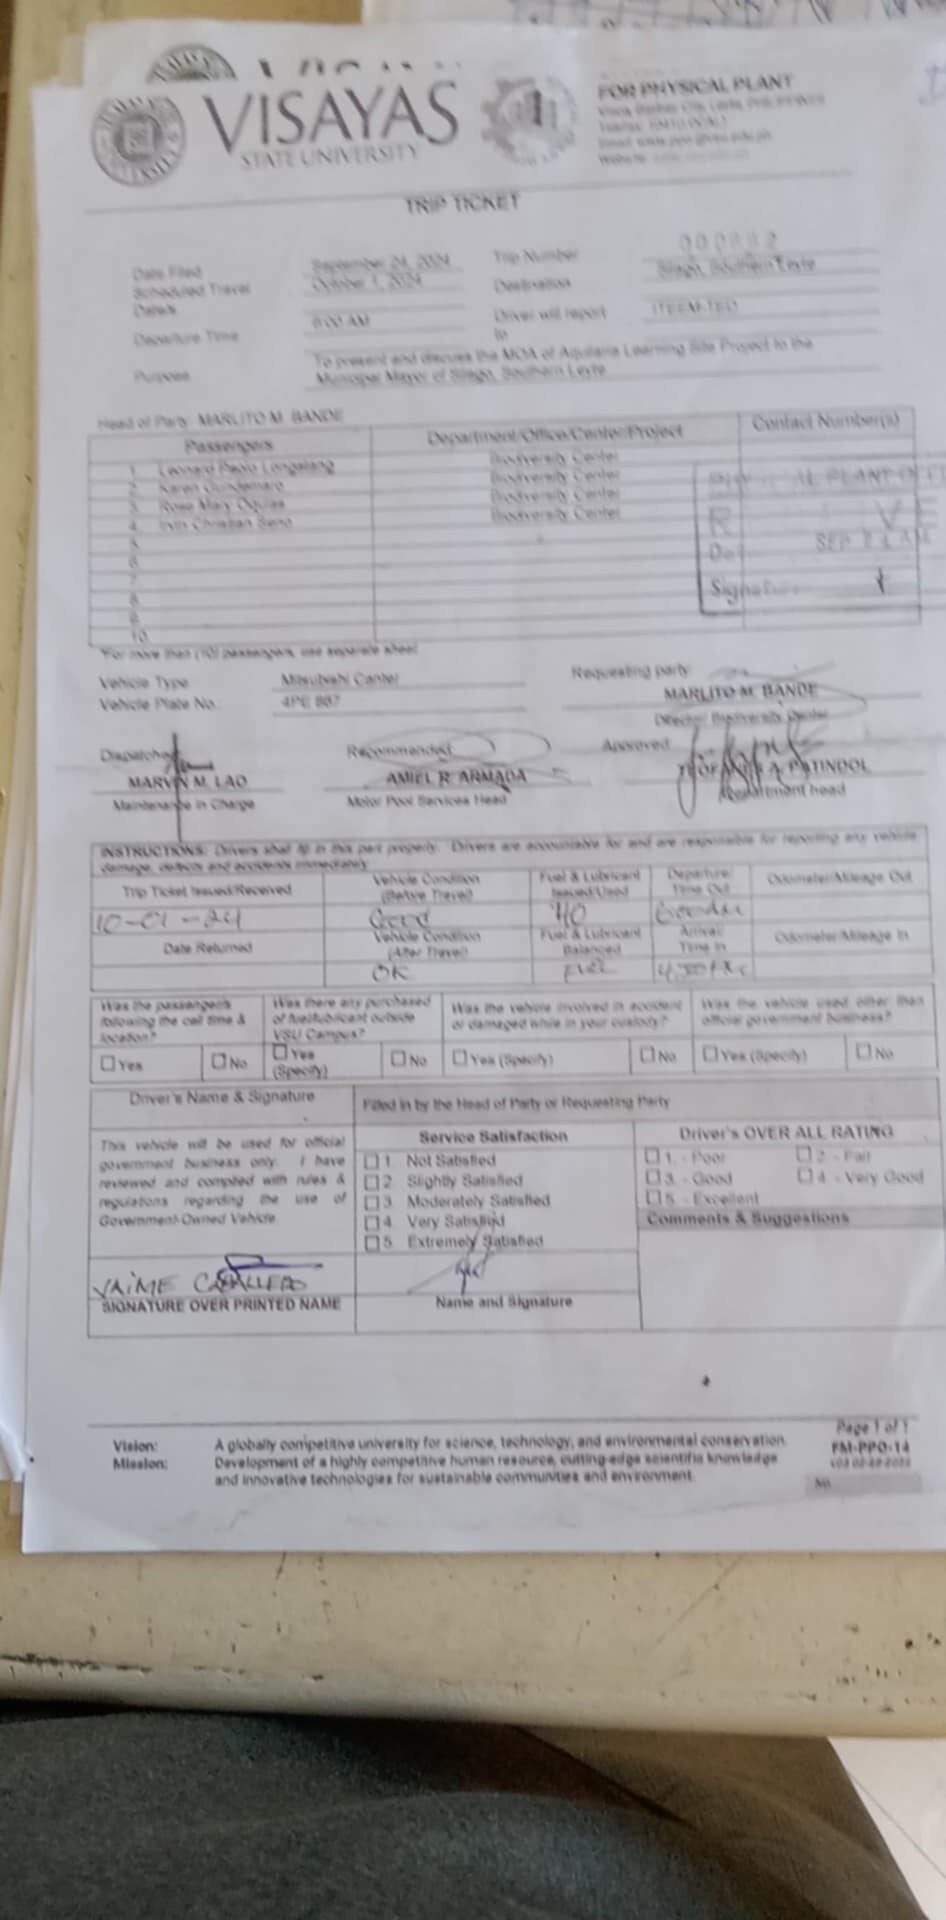 VISAYAS
STATE UNIVERSITY
FOR PHYSICAL PLANT
TRIP TICKET
Date Filed
September 24, 2024
Trip Number
Scheduled Travel
Date/s
October 1, 2024
Destination
Silago, Southern Leyte
Departure Time
6:00 AM
Driver will report
to
Purpose
To present and discuss the MOA of Aquilaria Learning Site Project to the
Municipal Mayor of Silago, Southern Leyte
Head of Party: MARLITO M. BANDE
Passengers
Department/Office/Center/Project
Contact Number(s)
1. Leonard Paolo Longalang
Biodiversity Center
2. Karen
Biodiversity Center
3. Rose Mary
Biodiversity Center
4. Irvin Christian
Biodiversity Center
5.
6.
7.
8.
9.
10.
PLANT
SEP
Signature
*For more than (10) passengers, use separate sheet
Vehicle Type
Mitsubishi Canter
Requesting party:
MARLITO M. BANDE
Director Biodiversity Center
Vehicle Plate No.:
Dispatched
MARVIN M. LAO
Maintenance In Charge
Recommended
AMIEL R. ARMADA
Motor Pool Services Head
Approved
A. PATINDOL
Department head
INSTRUCTIONS: Drivers shall fill in this part properly. Drivers are accountable for and are responsible for reporting any vehicle
damage, defects and accidents immediately
Trip Ticket Issued/Received
Vehicle Condition
(Before Travel)
Fuel & Lubricant
Issued/Used
Departure/
Time Out
Odometer/Mileage Out
10-01-24
Good
40
Date Returned
Vehicle Condition
(After Travel)
Fuel & Lubricant
Balanced
Arrival
Time In
Odometer/Mileage In
OK
Was the passenger/s
following the call time &
location?
Was there any purchased
of fuel/lubricant outside
VSU Campus?
Was the vehicle involved in accident
or damaged while in your custody?
Was the vehicle used other than
official government business?
☐ Yes
☐ No
☐ Yes
(Specify)
☐ No
☐ Yes (Specify)
☐ No
☐ Yes (Specify)
☐ No
Driver's Name & Signature
Filled in by the Head of Party or Requesting Party
This vehicle will be used for official
government business only. I have
reviewed and complied with rules &
regulations regarding the use of
Government-Owned Vehicle.
Service Satisfaction
☐ 1. Not Satisfied
☐ 2. Slightly Satisfied
☐ 3. Moderately Satisfied
☐ 4. Very Satisfied
☐ 5. Extremely Satisfied
Driver's OVER ALL RATING
☐ 1. - Poor
☐ 2 - Fair
☐ 3. - Good
☐ 4 - Very Good
☐ 5. - Excellent
Comments & Suggestions
JAIME CABALLERO
SIGNATURE OVER PRINTED NAME
Name and Signature
Vision: A globally competitive university for science, technology, and environmental conservation.
Mission: Development of a highly competitive human resource, cutting-edge scientific knowledge
and innovative technologies for sustainable communities and environment.
Page 1 of 1
FM-PPO-14
No.